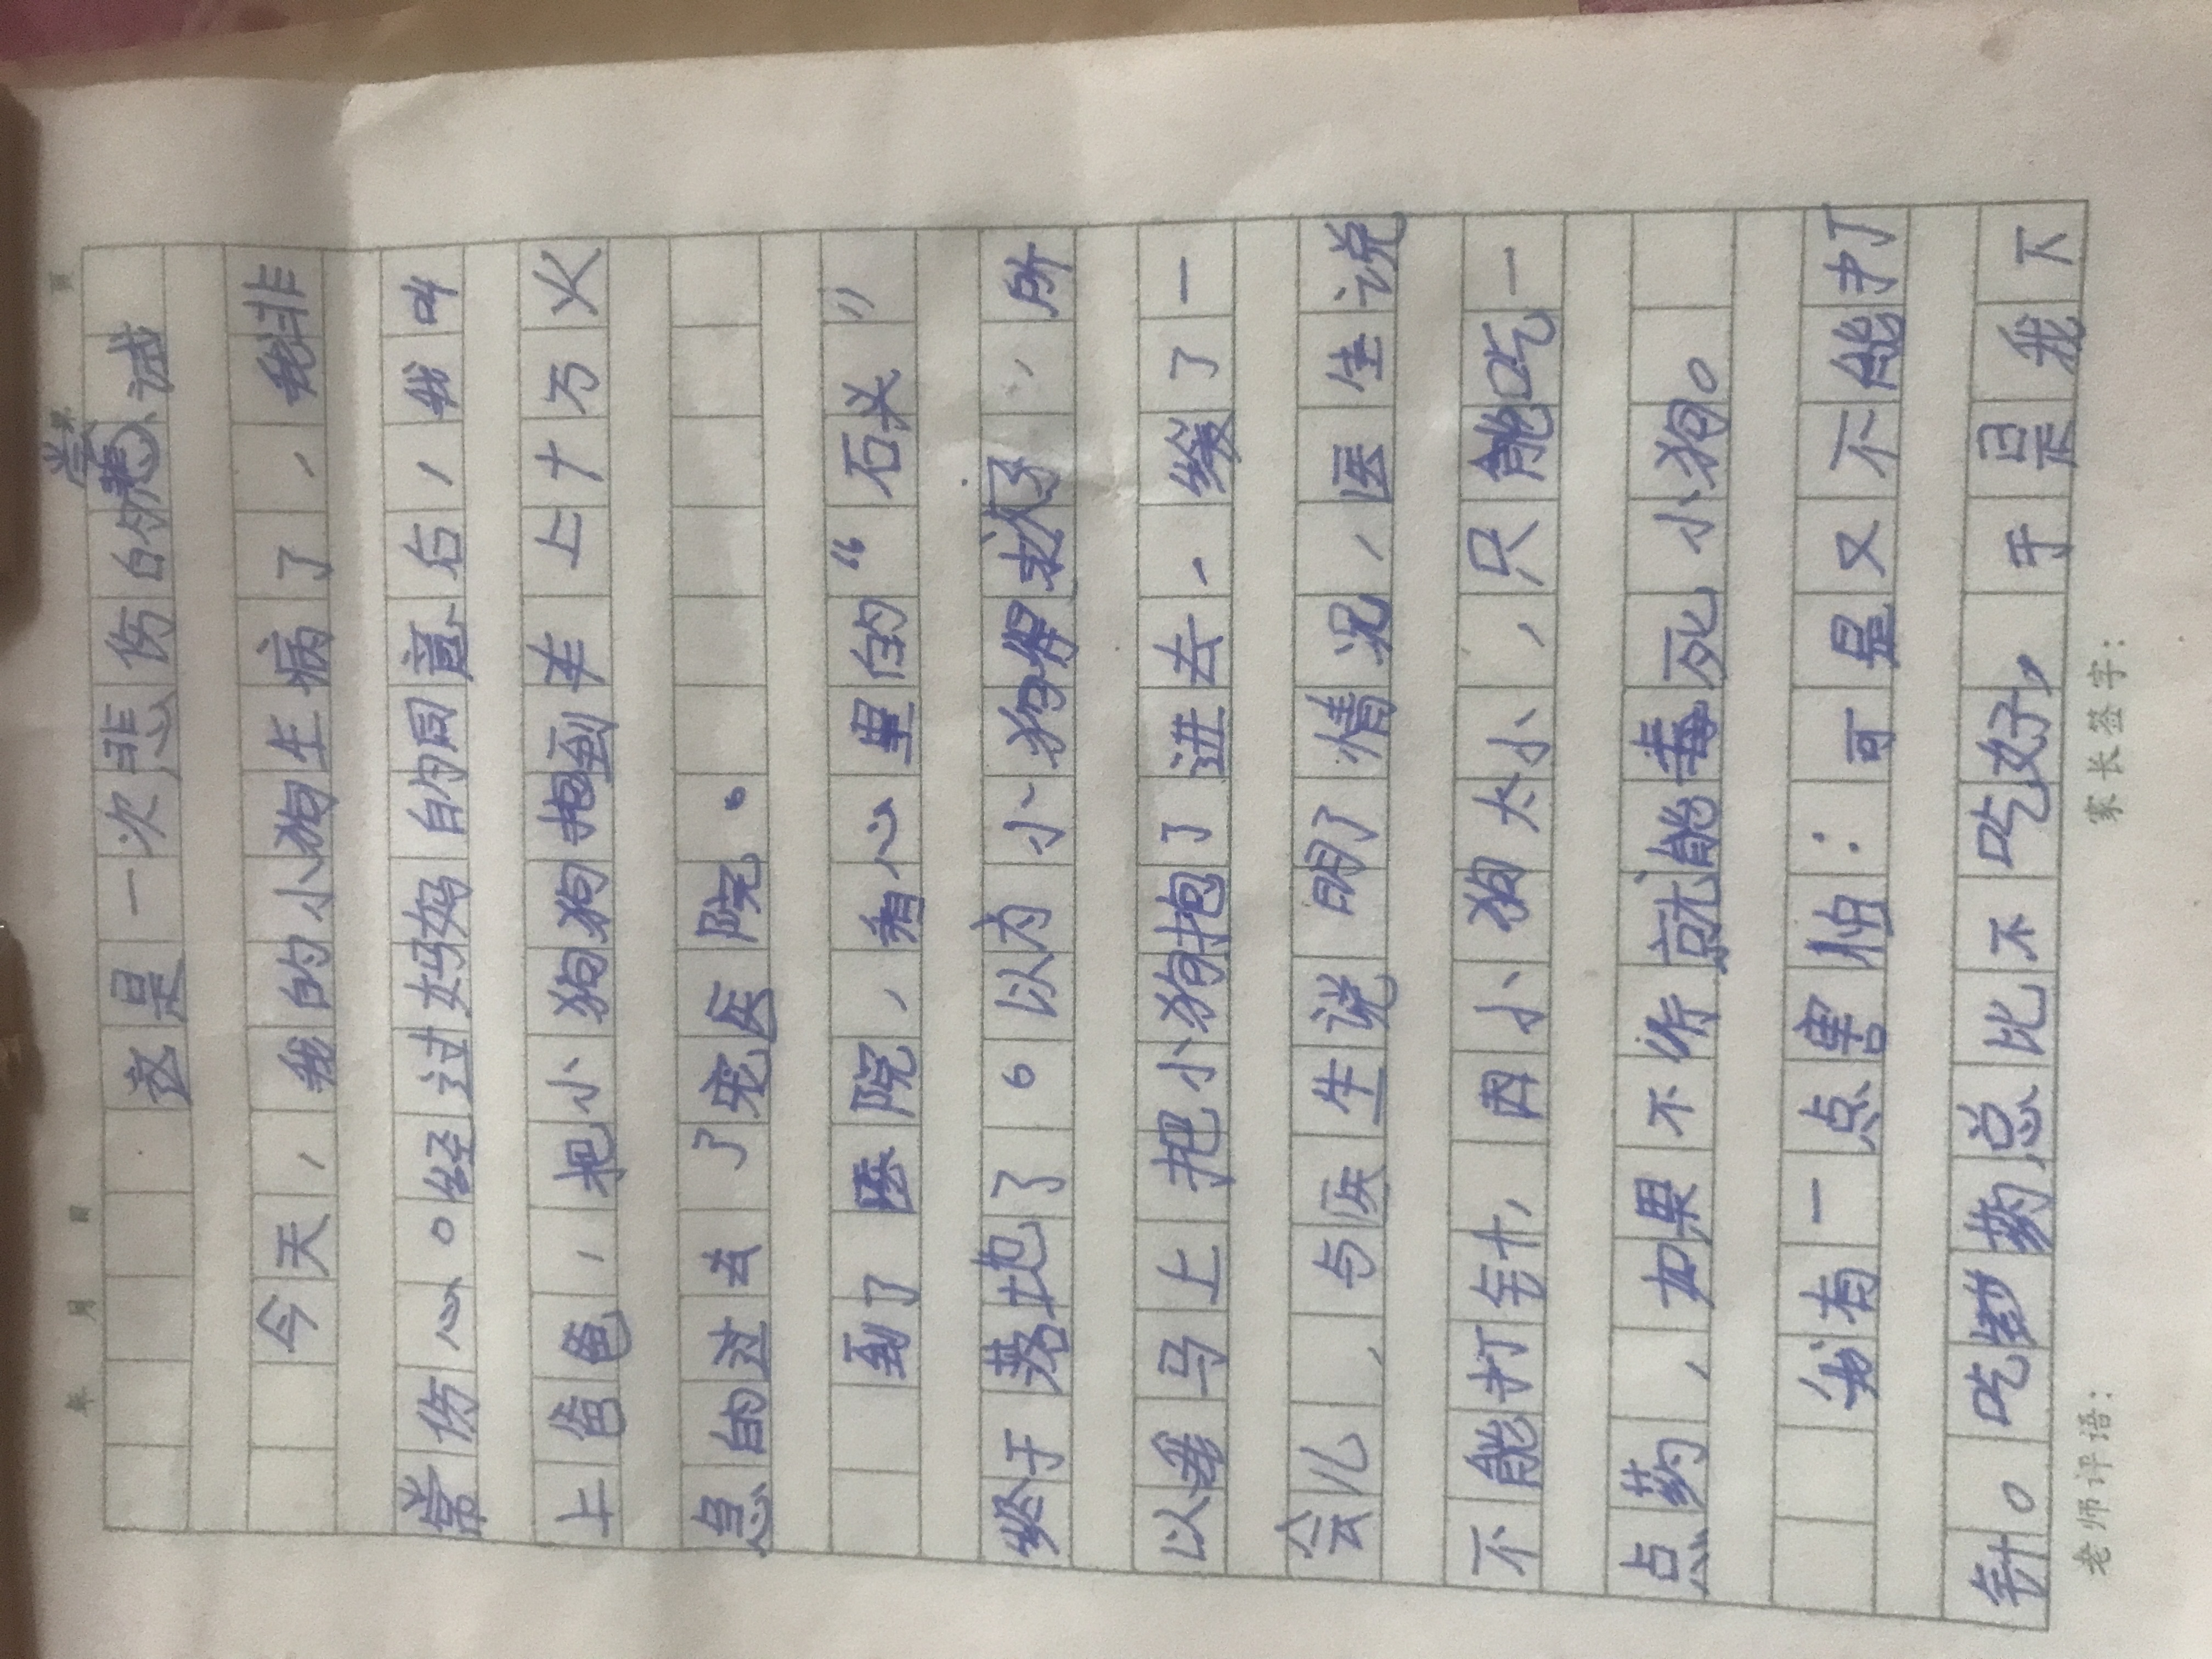 年 月 日 页
这是一次悲伤的尝试
今天，我的小狗生病了，我非
常伤心。经过妈妈的同意后，我叫
上爸爸，把小狗狗抱到车上十万火
急的过去了宠医院。
到了医院，看心里的“石头”
终于落地了。以为小狗得救了，所
以我马上把小狗抱了进去，缓了一
会儿，与医生说明了情况，医生说
不能打针，因小狗太小，只能吃一
点药，如果不行就能毒死小狗。
我有一点害怕：可是又不能打
针。吃药总比不吃好，于是我下
老师评语： 家长签字：